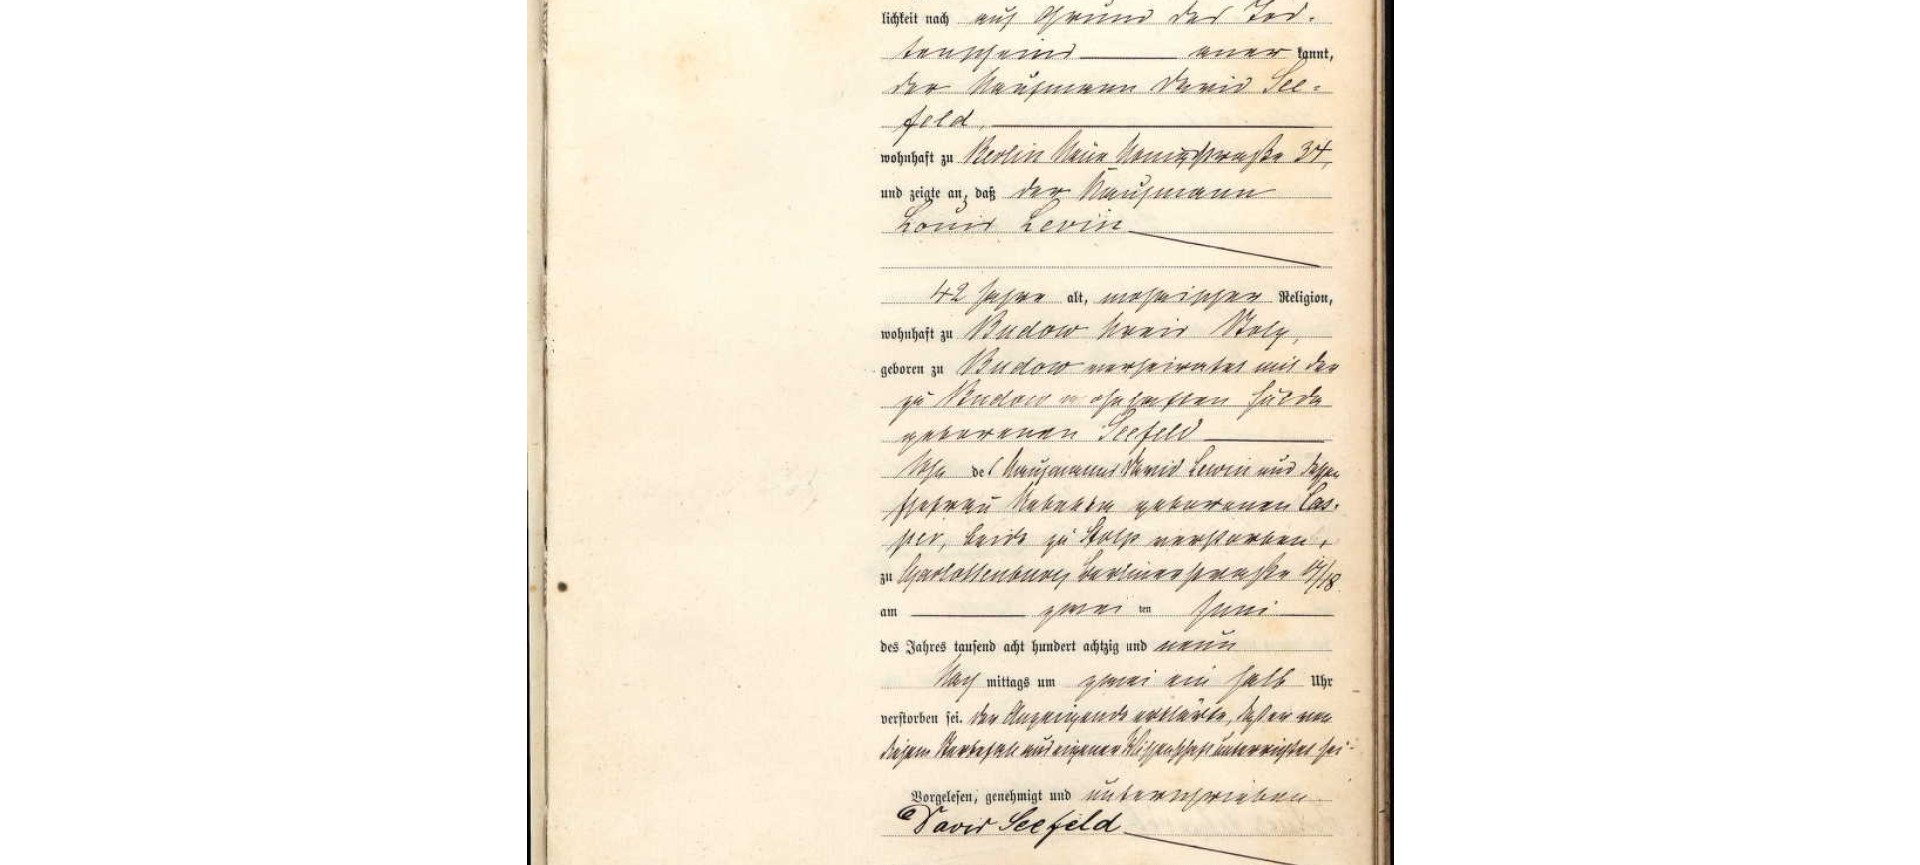 lichkeit nach auf Grund des Tod-
tenscheins aner kannt,
der Kaufmann David See-
feld,
wohnhaft zu Berlin Neue Königstraße 34,
und zeigte an, daß der Kaufmann
Louis Levin
42 Jahre alt, mosaischer Religion,
wohnhaft zu Budow Kreis Stolp,
geboren zu Budow verheiratet mit der
zu Budow wohnhaften Hulda
geborenen Seefeld
Sohn des Kaufmanns David Lewin und dessen
Ehefrau Rebekka geborenen Cas-
per, beide zu Stolp verstorben,
zu Charlottenburg Berlinerstraße 17/18
am zwei ten Juni
des Jahres tausend acht hundert achtzig und neun
Nach mittags um zwei ein halb Uhr
verstorben sei. Der Anzeigende erklärte, daß er von
diesem Sterbefall aus eigener Wissenschaft unterrichtet sei.
Vorgelesen, genehmigt und unterschrieben
David Seefeld